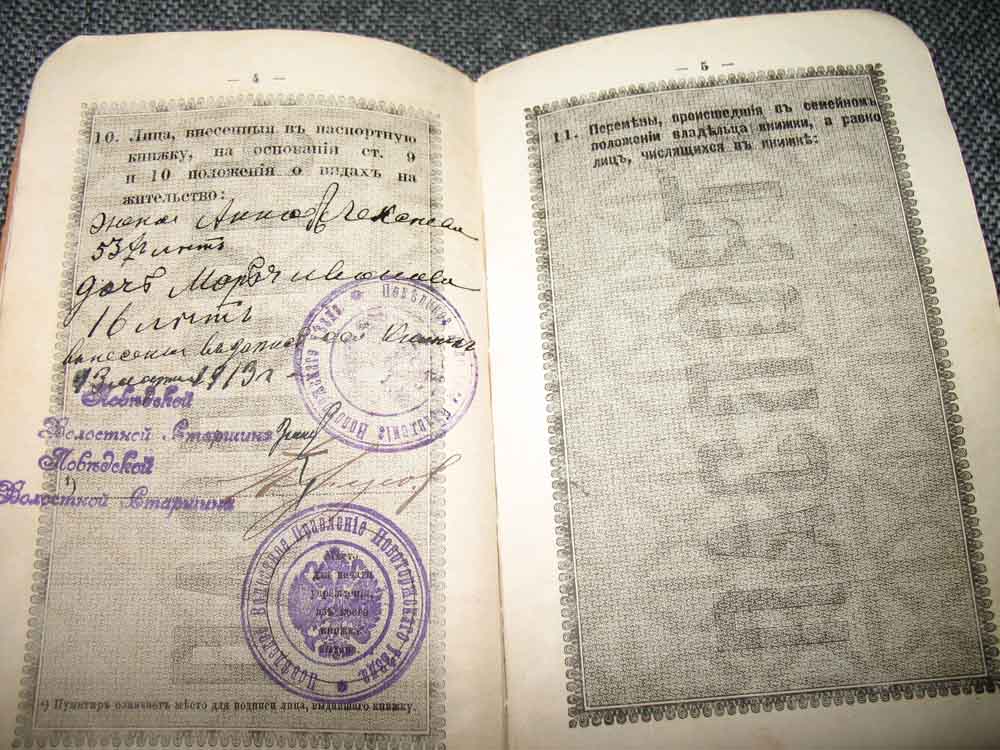 — 4 —
10. Лица, внесенныя въ паспортную
книжку, на основаніи ст. 9
и 10 положенія о видахъ на
жительство:
жена Анна Алексеева
53 лѣтъ
дочь Марья Иванова
16 лѣтъ
книжки
13 марта 1913 г
Повѣдской
Волостной Старшина
Повѣдской
1)
Волостной Старшина
Повѣдское Волостное Правленіе Новоторжскаго Уѣзда
Повѣдское Волостное Правленіе Новоторжскаго Уѣзда
Мѣсто
для печати
учрежденія,
изъ коего
книжка
выдана.
¹) Пунктиръ означаетъ мѣсто для подписи лица, выдавшаго книжку.
— 5 —
11. Перемѣны, происшедшія въ семейномъ
положеніи владѣльца книжки, а равно
лицъ, числящихся въ книжкѣ:
ПАСПОРТ